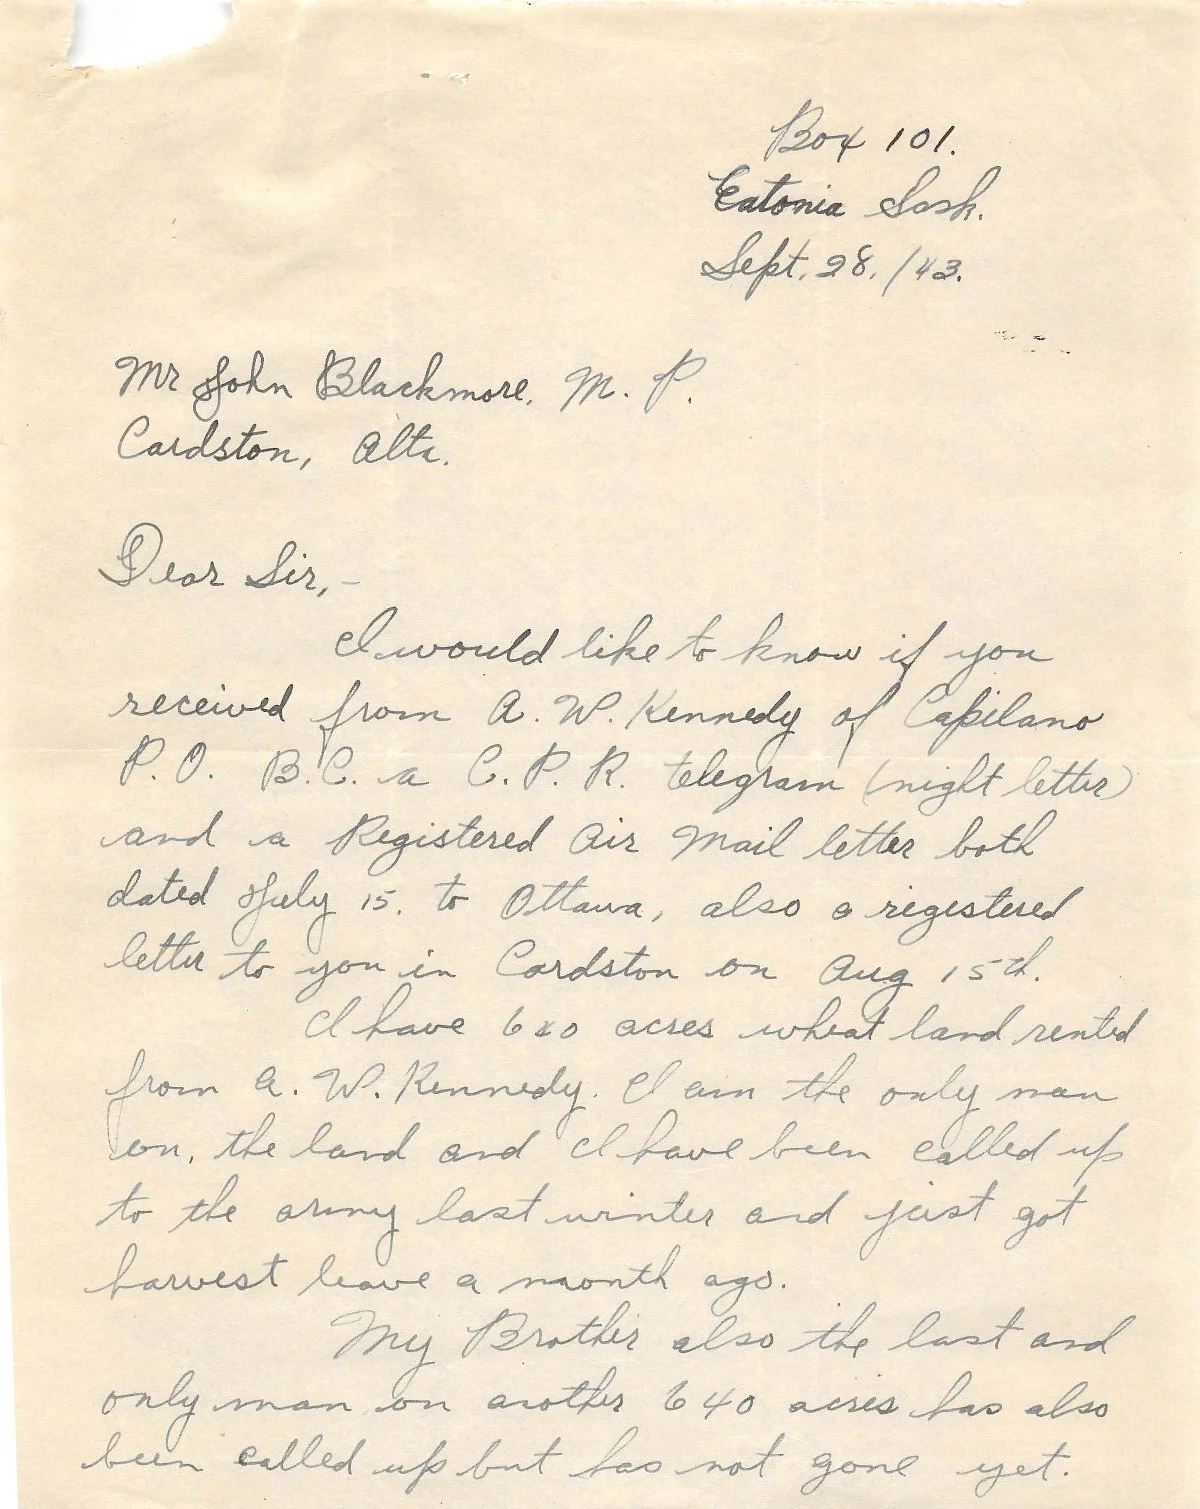 Box 101.
Eatonia Sask.
Sept. 28. /43.
Mr John Blackmore, M. P.
Cardston, Alta.
Dear Sir,-
I would like to know if you
received from A. W. Kennedy of Capilano
P. O. B.C. a C. P. R. telegram (night letter)
and a Registered Air Mail letter both
dated July 15. to Ottawa, also a registered
letter to you in Cardston on Aug 15th.
I have 640 acres wheat land rented
from A. W. Kennedy. I am the only man
on, the land and I have been called up
to the army last winter and just got
harvest leave a month ago.
My Brother also the last and
only man on another 640 acres has also
been called up but has not gone yet.